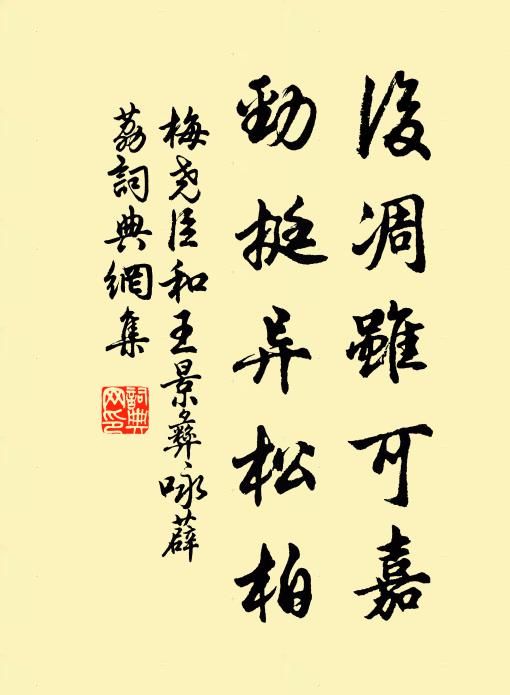 後凋雖可嘉
勁挺异松柏
梅尧臣和王景彝咏薜
荔詞典網集
詞典
网印